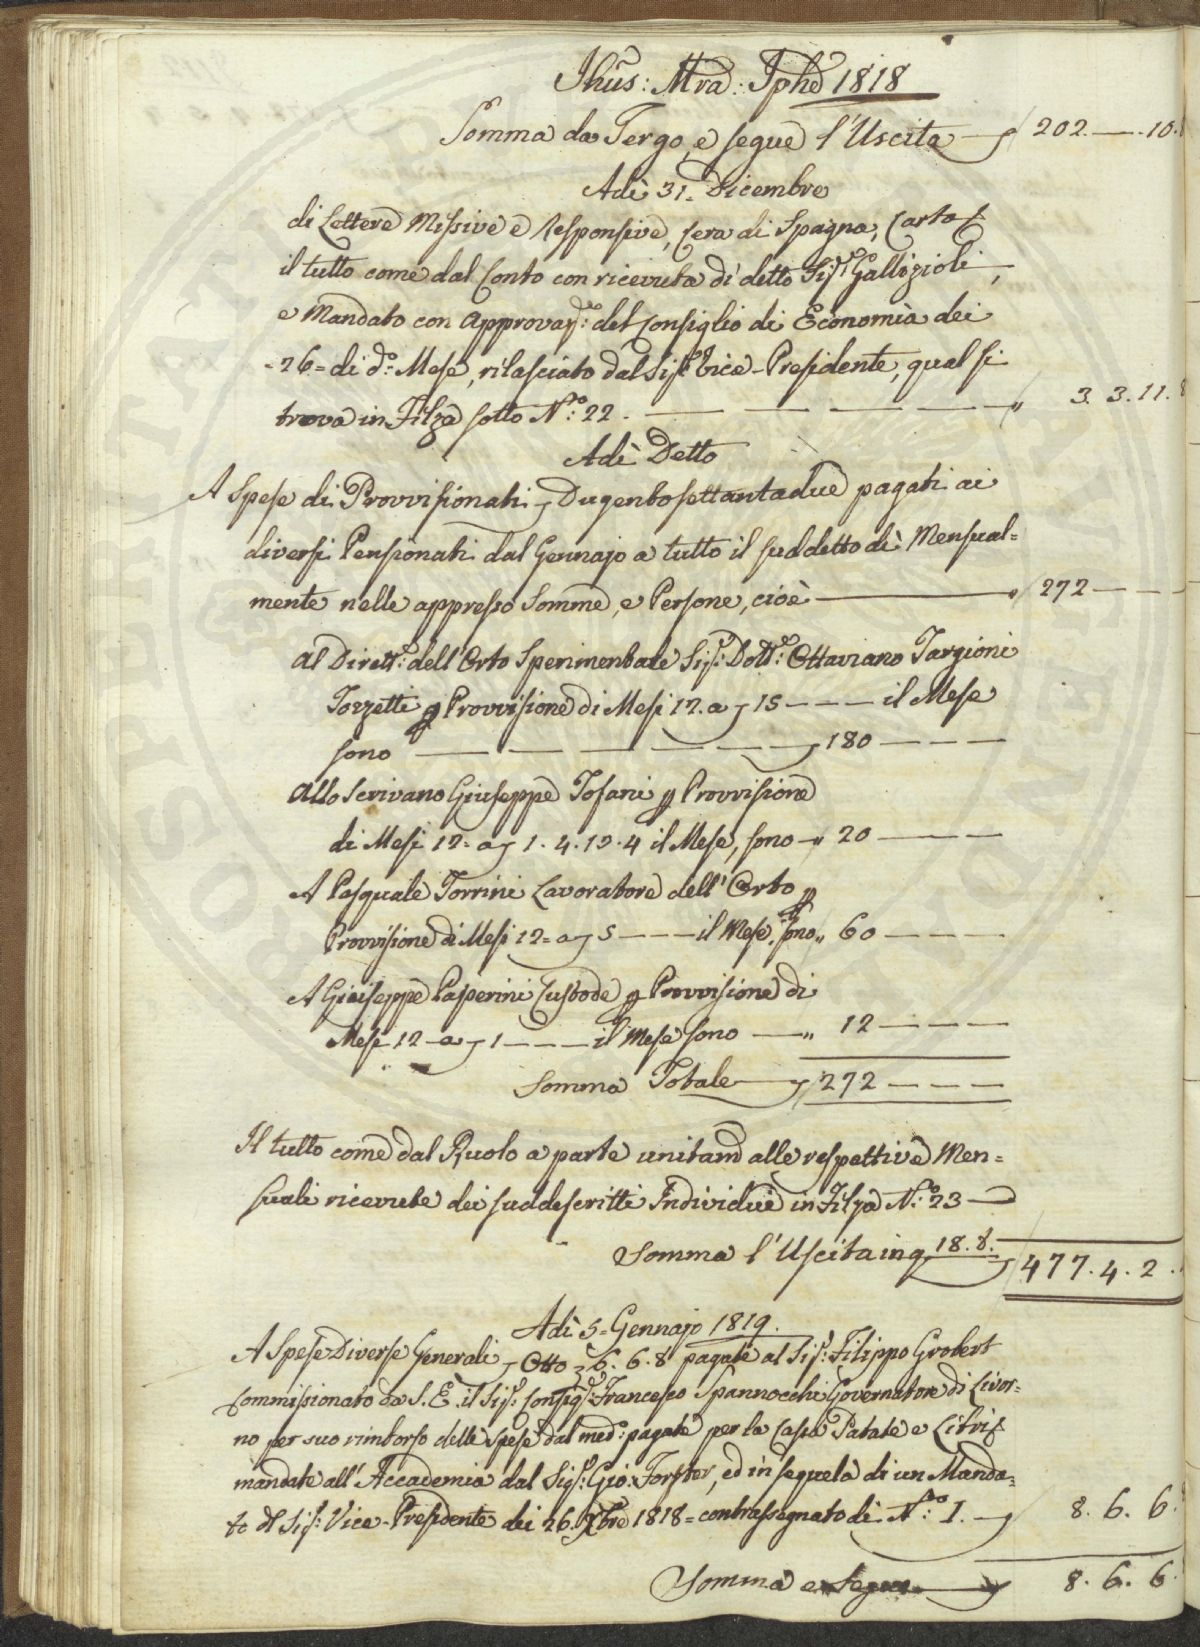 Jhũs: Mra: Jphe 1818
Somma da Tergo, e segue l'Uscita 202. — .10.
Adì 31. Dicembre
di Lettere Missive e Responsive, Cera di Spagna, Carta &
il tutto come dal Conto con ricevuta di detto Sigr. Gallizioli,
e Mandato con Approvaz:ne del Consiglio di Economia dei
-26= di do: Mese, rilasciato dal Sigr. Vice-Presidente, qual si
trova in Filza sotto No: 22. — — — — — " 3. 3. 11. 8
Adì Detto
A Spese di Provvisionati Dugentosettantadue pagati ai
diversi Pensionati dal Gennajo a tutto il suddetto dì Mensual=
mente nelle appresso Somme, e Persone, cioè — 272 — — —
Al Dirett:e dell'Orto Sperimentale Sigr: Dottr: Ottaviano Targioni
Tozzetti p Provvisione di Mesi 12. a 15 — — — il Mese
sono — — — — — 180 — — —
Allo Scrivano Giuseppe Tofani p Provvisione
di Mesi 12= a 1. 4. 13. 4 il Mese, sono " 20 — — —
A Pasquale Torrini Lavoratore dell'Orto p
Provvisione di Mesi 12= a 5 — — — il Mese, sono " 60 — — —
A Giuseppe Paperini Custode p Provvisione di
Mesi 12 a 1 — — — il Mese sono — " 12 — — —
Somma Totale — 272 — — —
Il tutto come dal Ruolo a parte unitam alle respettive Men=
suali ricevute dei suddescritti Individui in Filza No: 23 —
Somma l'Uscita in q 18. 8. 477. 4. 2.
Adì 5= Gennajo 1819.
A Spese Diverse Generali Otto 6. 6. 8 pagate al Sigr: Filippo Grobert
Commissionato da S. E. il Sigr. Consigre: Francesco Spannocchi Governatore di Livor=
no per suo rimborso delle spese dal medo: pagate per la Cassa Patate e Libri &
mandate all'Accademia dal Sigr: Gio: Forster, ed in sequela di un Manda=
to del Sigr: Vice-Presidente dei 26. Xbre 1818= contrassegnato di No: I. — 8. 6. 6.
Somma e Segue — 8. 6. 6.